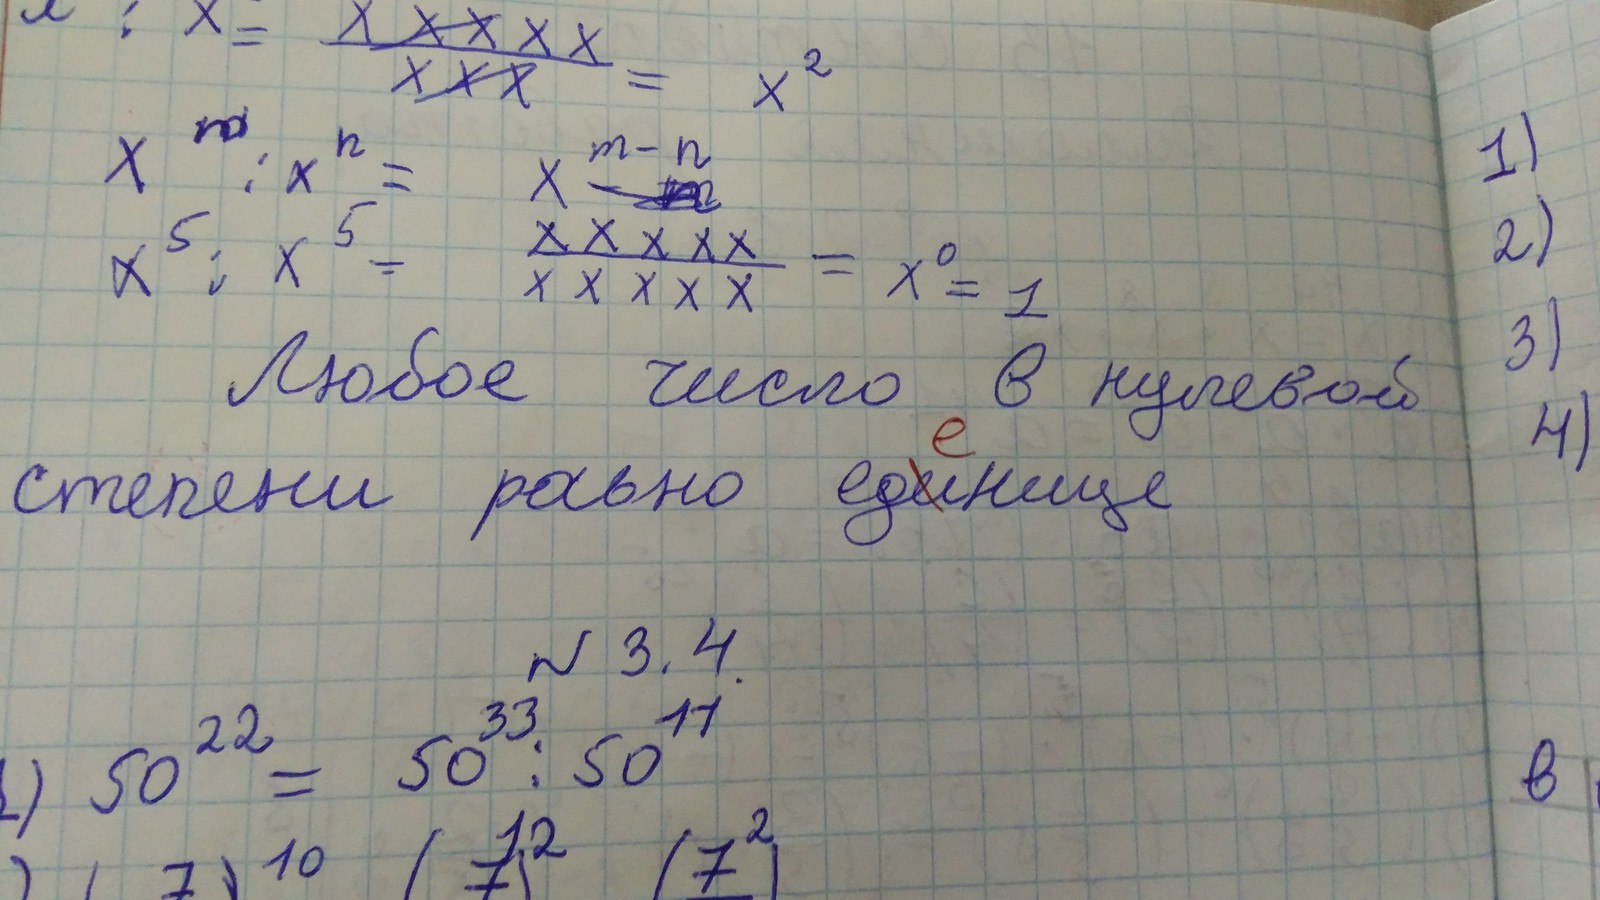 : x = x x x x x / x x x = x²
xᵐ : xⁿ = xᵐ⁻ⁿ
x⁵ : x⁵ = x x x x x / x x x x x = x⁰ = 1
Любое число в нулевой
е
степени равно единице
N 3.4.
1) 50²² = 50³³ : 50¹¹
) ( 7 )¹⁰ ( 7 )¹² ( 7² )
1)
2)
3)
4)
в